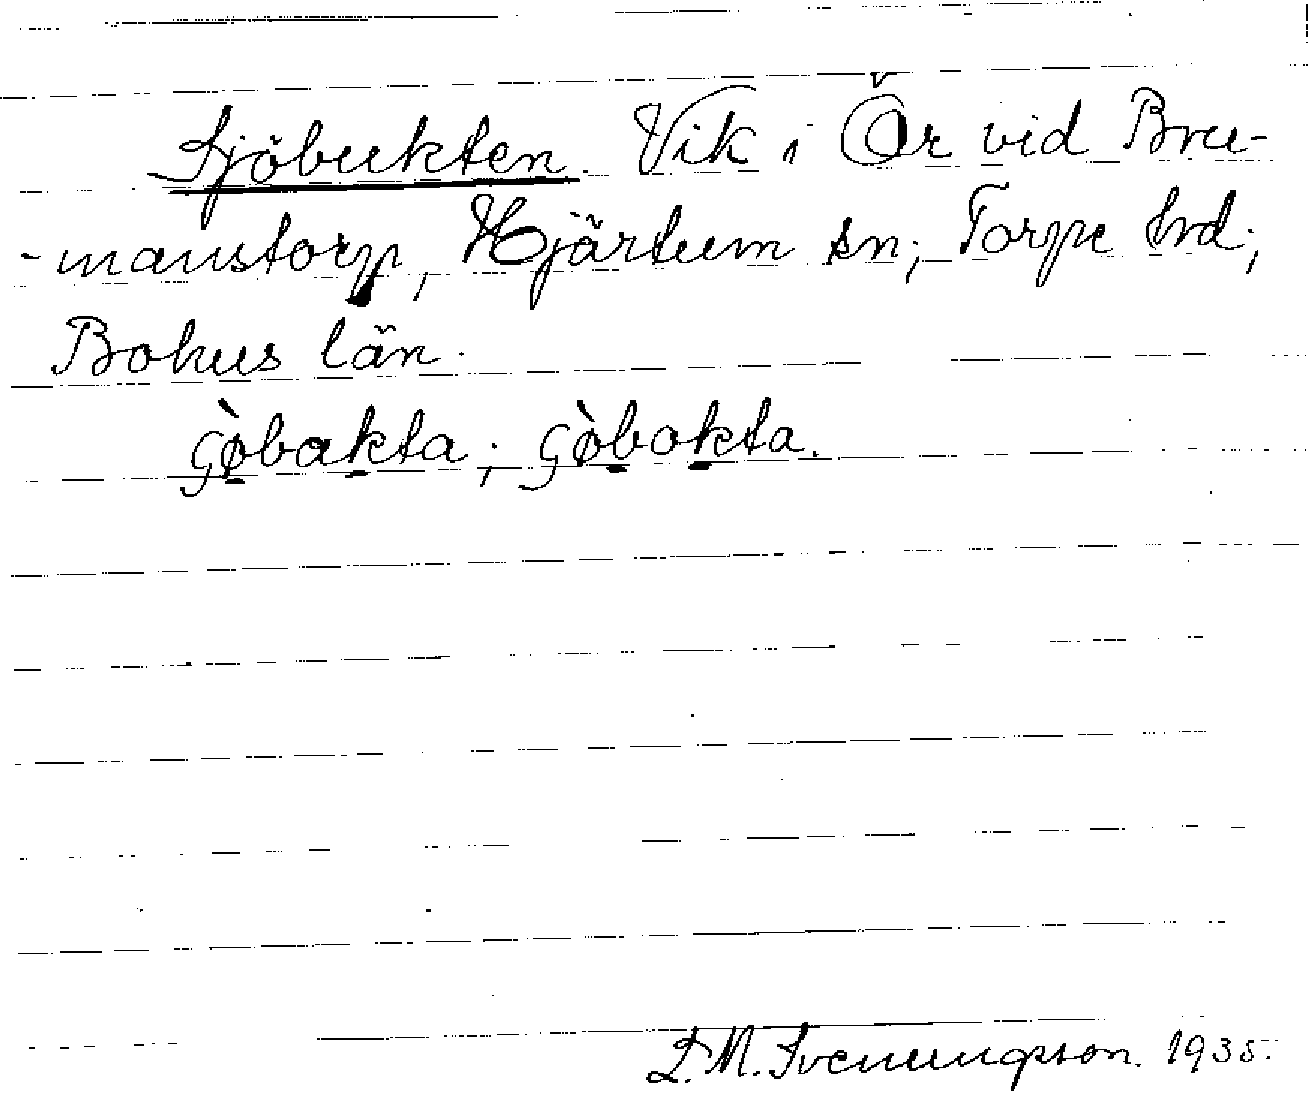 Sjöbukten. Vik i Ör vid Bru-
-manstorp, Hjärtum sn; Torpe hrd;
Bohus län.
çø̀bakta; çø̀bokta.
Svenungsson. 1935.